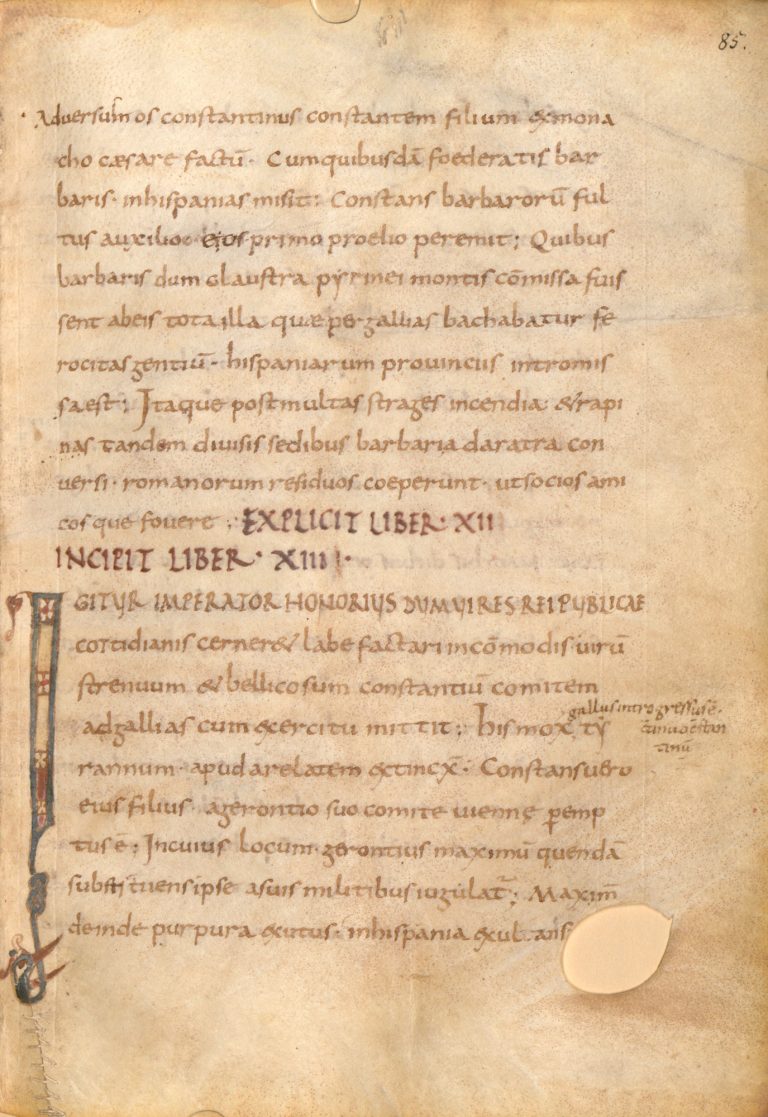 85.
Adversum os constantinus constantem filium exmona
cho cæsare factū· Cumquibusdā foederatis bar
baris· inhispanias misit; Constans barbarorū ful
tus auxilio eos primo proelio peremit; Quibus
barbaris dum claustra pyrinei montis cōmissa fuis
sent abeis tota illa quæ per gallias bachabatur fe
rocitas gentiū· hispaniarum provinciis intromis
sa est; Itaque post multas strages incendia & rapi
nas tandem divisis sedibus barbaria daratra con
versi· romanorum residuos coeperunt· ut socios ami
cos que fovere; EXPLICIT LIBER· XII
INCIPIT LIBER· XIII·
IGITUR IMPERATOR HONORIUS DUM VIRES REI PUBLICAE
cottidianis cerner& labefactari incōmodis· virū
strenuum & bellicosum constantiū comitem
ad gallias cum exercitu mittit; his mox ty
gallus introgressus ē·
rannum· apud arelatem extinx̄· Constans vero
eius filius· a gerontio suo comite viennę pemp
tus ē; In cuius locum· gerontius maximū quendā
substituens ipse a suis militibus iugulat; Maxim
deinde purpura exutus· in hispania exulans